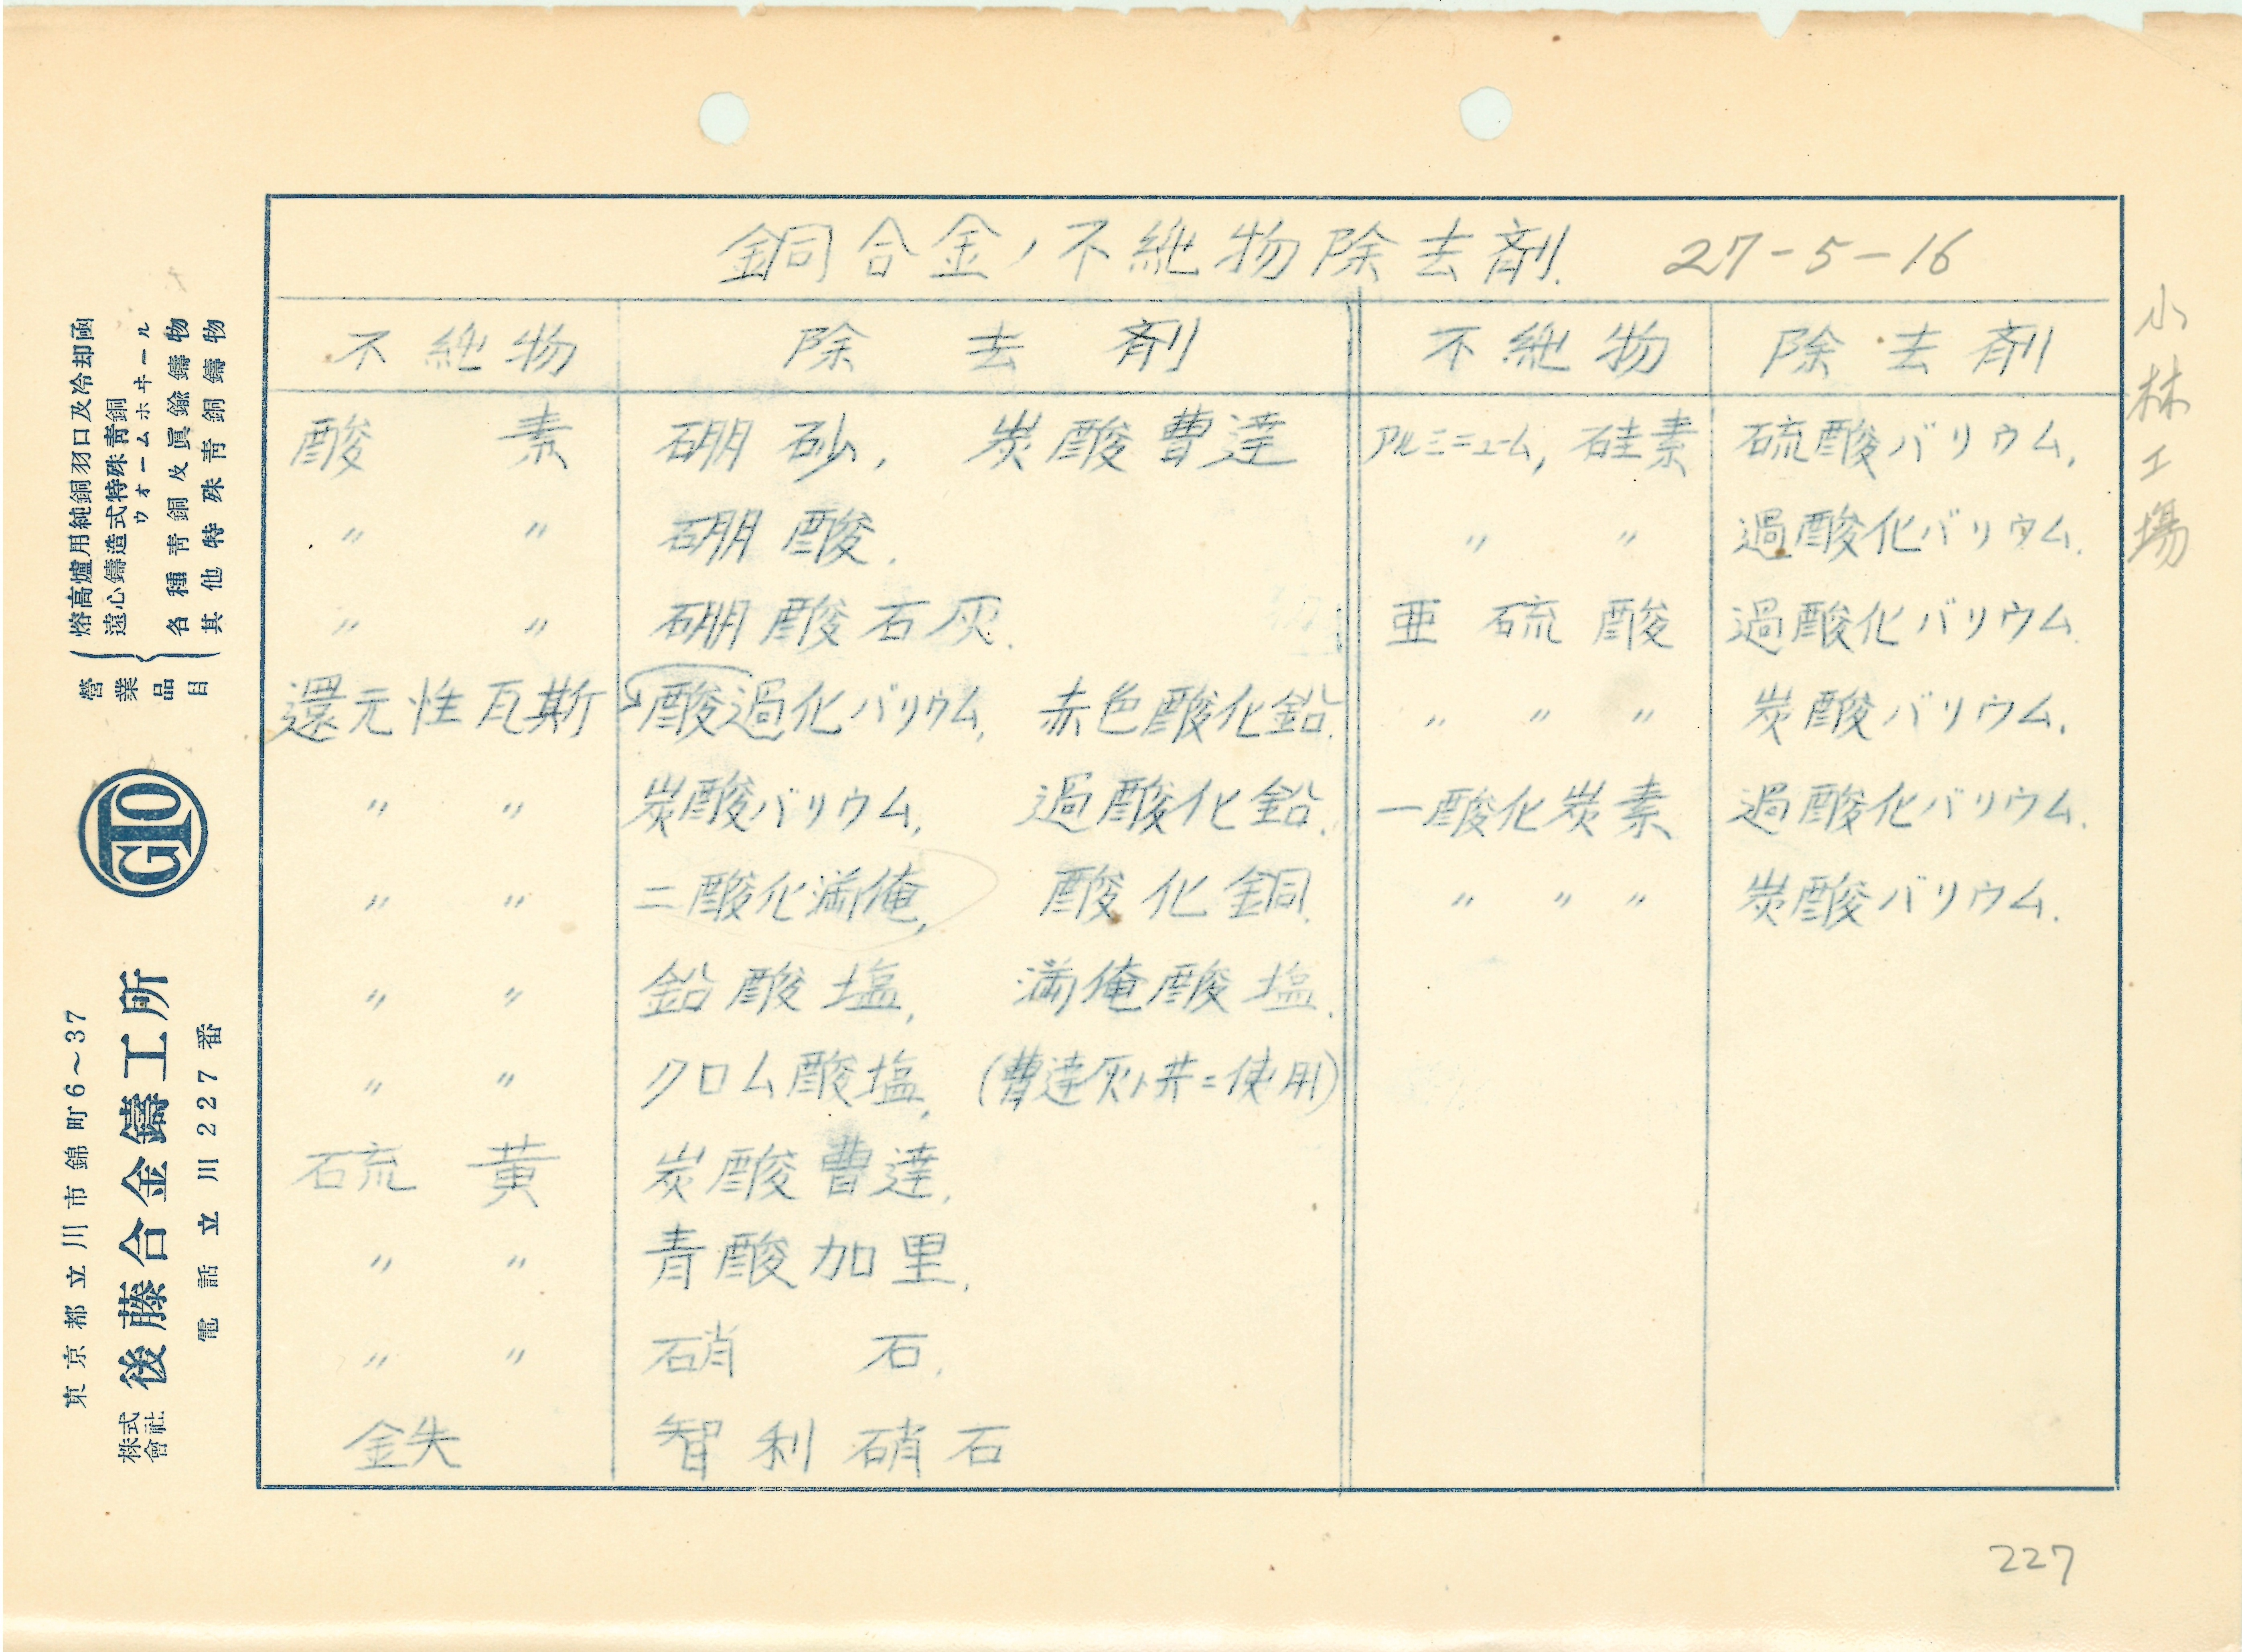 銅合金ノ不純物除去剤. 27-5-16
小林工場
不純物 除去剤 不純物 除去剤
酸素 硼砂, 炭酸曹達 アルミニューム, 硅素 硫酸バリウム,
〃 〃 硼酸. 〃 〃 過酸化バリウム.
〃 〃 硼酸石灰. 亜硫酸 過酸化バリウム.
還元性瓦斯 酸過化バリウム, 赤色酸化鉛. 〃 〃 〃 炭酸バリウム.
〃 〃 炭酸バリウム, 過酸化鉛. 一酸化炭素 過酸化バリウム.
〃 〃 二酸化満俺, 酸化銅. 〃 〃 〃 炭酸バリウム.
〃 〃 鉛酸塩, 満俺酸塩.
〃 〃 クロム酸塩, (曹達灰ト共ニ使用)
硫黄 炭酸曹達,
〃 〃 青酸加里,
〃 〃 硝石.
鉄 智利硝石
227
營業品目
熔高爐用純銅羽口及冷却函
遠心鑄造式特殊青銅
ウォームホヰール
各種青銅及眞鍮鑄物
其他特殊青銅鑄物
GTO
東京都立川市錦町6~37
株式會社 後藤合金鑄工所
電話立川227番